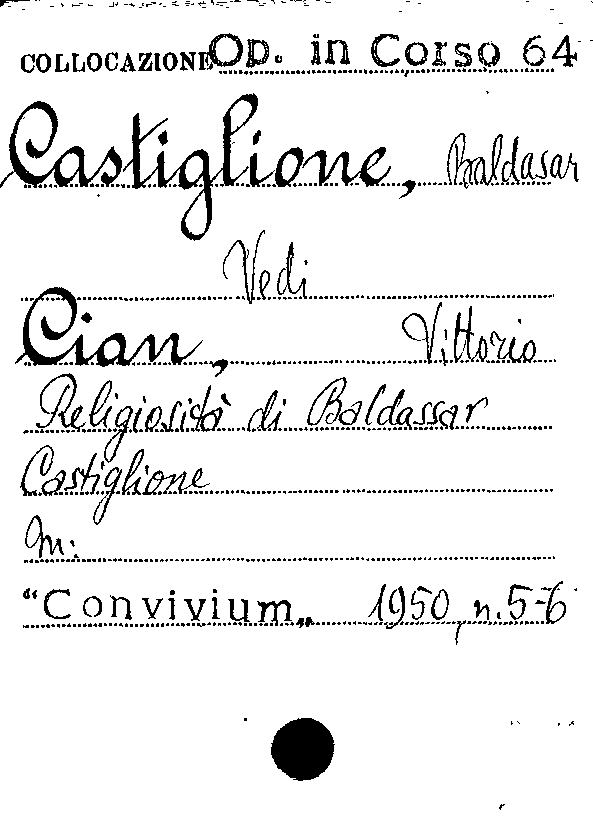 COLLOCAZIONE Op. in Corso 64
Castiglione, Baldasar
Vedi
Cian, Vittorio
Religiosità di Baldassar
Castiglione
In:
"Convivium„ 1950, n. 5-6